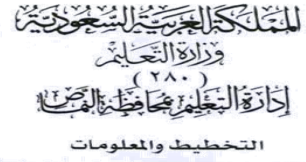 المملكة العربية السعودية
وزارة التعليم
( ٢٨٠ )
إدارة التعليم بمحافظة النماص
التخطيط والمعلومات